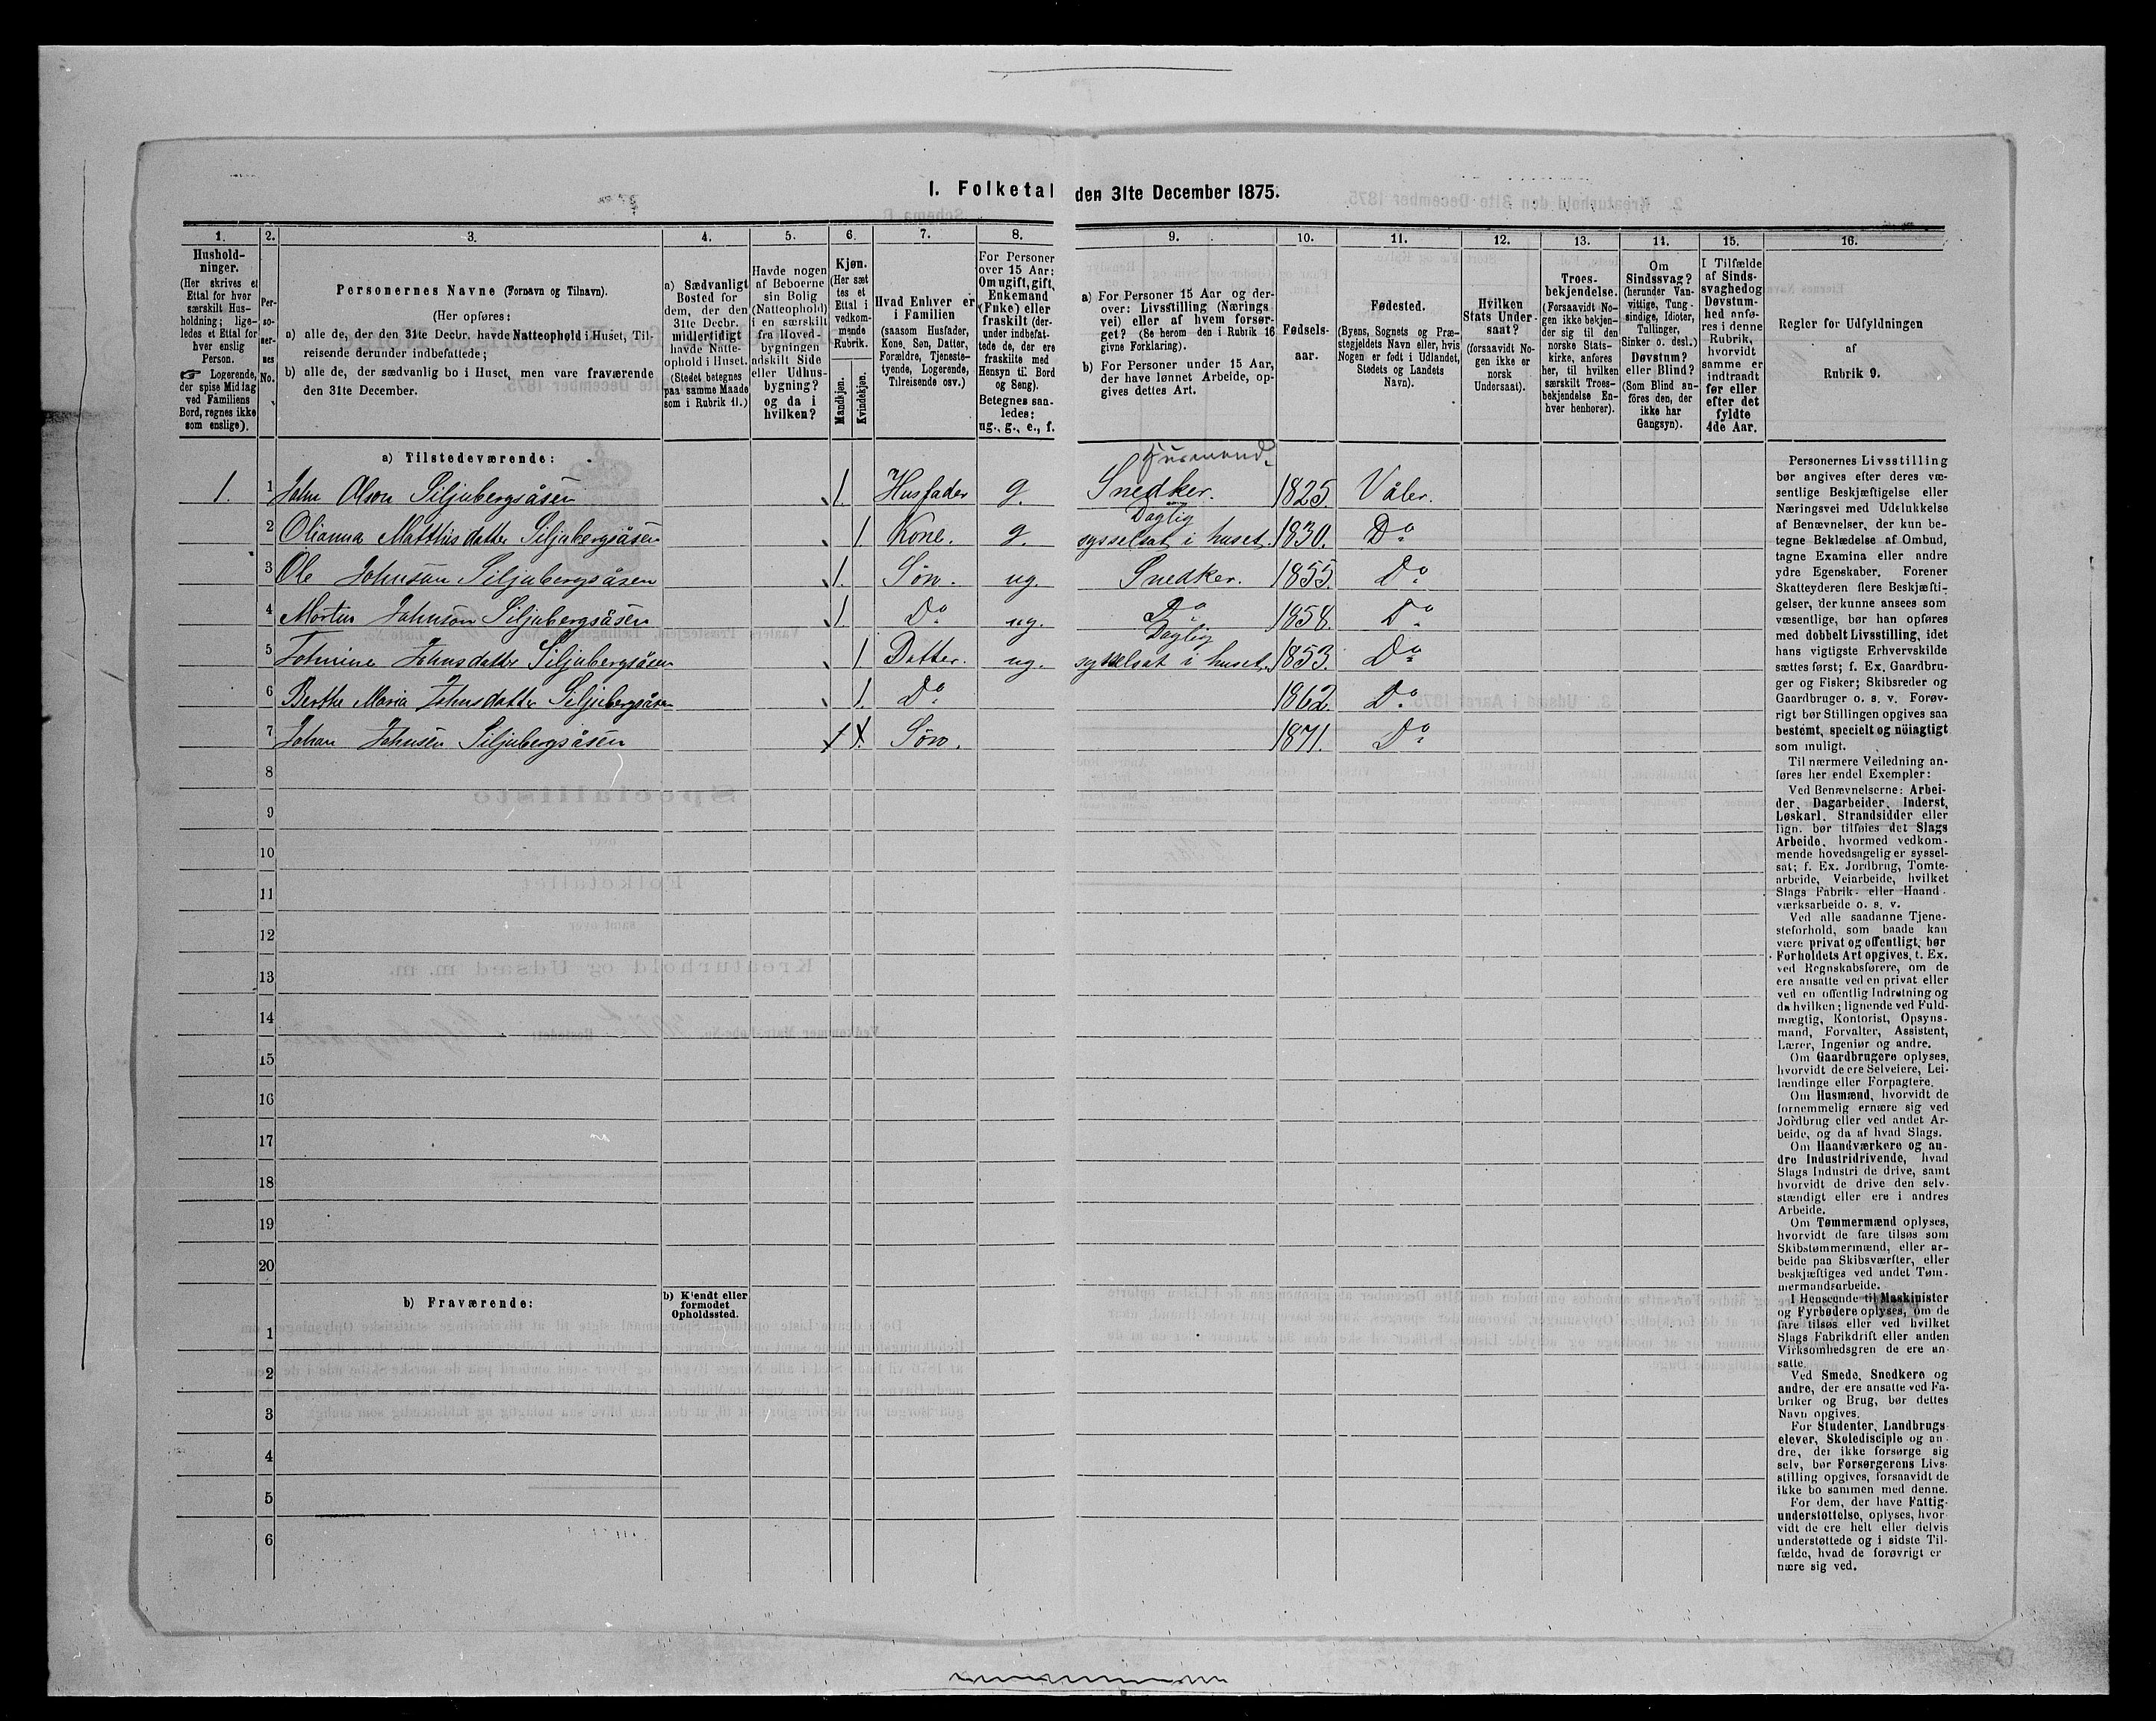 I. Folketal den 31te December 1875.
1.
Hushold-
ninger.
(Her skrives et
Ettal for hver
særskilt Hus-
holdning; lige-
ledes et Ettal for
hver enslig
Person.
☞ Logerende,
der spise Middag
ved Familiens
Bord, regnes ikke
som enslige).
2.
Per-
so-
ner-
nes
No.
3.
Personernes Navne (Fornavn og Tilnavn).
(Her opføres:
a) alle de, der den 31te Decbr. havde Natteophold i Huset, Til-
reisende derunder indbefattede;
b) alle de, der sædvanlig bo i Huset, men vare fraværende
den 31te December.
4.
a) Sædvanligt
Bosted for
dem, der den
31te Decbr.
midlertidigt
havde Natte-
ophold i Huset.
(Stedet betegnes
paa samme Maade
som i Rubrik 11.)
5.
Havde nogen
af Beboerne
sin Bolig
(Natteophold)
i en særskilt
fra Hoved-
bygningen
adskilt Side
eller Udhus-
bygning?
og da i
hvilken?
6.
Kjøn.
(Her sæt
tes et
Ettal i
vedkom-
mende
Rubrik.
Mandkjøn.
Kvindekjøn.
7.
Hvad Enhver er
i Familien
(saasom Husfader,
Kone, Søn, Datter,
Forældre, Tjeneste-
tyende, Logerende,
Tilreisende osv.)
8.
For Personer
over 15 Aar:
Om ugift, gift,
Enkemand
(Enke) eller
fraskilt (der-
under indbefat-
tede de, der ere
fraskilte med
Hensyn til Bord
og Seng).
Betegnes saa-
ledes:
ug., g., e., f.
9.
a) For Personer 15 Aar og der-
over: Livsstilling (Nærings
vei) eller af hvem forsør-
get? (Se herom den i Rubrik 16
givne Forklaring).
b) For Personer under 15 Aar,
der have lønnet Arbeide, op-
gives dettes Art.
10.
Fødsels-
aar.
11.
Fødested.
(Byens, Sognets og Præ-
stegjeldets Navn eller, hvis
Nogen er født i Udlandet,
Stedets og Landets
Navn).
12.
Hvilken
Stats Under-
saat?
(forsaavidt No-
gen ikke er
norsk
Undersaat).
13.
Troes-
bekjendelse.
(Forsaavidt No-
gen ikke bekjen-
der sig til den
norske Stats-
kirke, anføres
her, til hvilken
særskilt Troes-
bekjendelse En-
hver henhører).
14.
Om
Sindssvag?
(herunder Van-
vittige, Tung-
sindige, Idioter,
Tullinger,
Sinker o. desl.)
Døvstum?
eller Blind?
(Som Blind an-
føres den, der
ikke har
Gangsyn).
15.
I Tilfælde
af Sinds-
svaghed og
Døvstum-
hed anfø-
res i denne
Rubrik,
hvorvidt
samme er
indtraadt
før eller
efter det
fyldte
4de Aar.
16.
Regler for Udfyldningen
af
Rubrik 9.
a) Tilstedeværende:
Husmand.
1. 1 John Olson Siljubergsåsen 1. Husfader g. Snedker. 1825. Våler.
2 Olianna Matthisdatter Siljubergsåsen 1. Kone. g. Daglig sysselsat i huset. 1830. Do
3 Ole Johnsøn Siljubergsåsen 1. Søn. ug. Snedker. 1855. Do
4 Martin Johnsøn Siljubergsåsen 1. Do ug. Do 1858. Do
5 Johnine Johnsdatter Siljubergsåsen 1 Datter. ug. Daglig sysselsat i huset. 1853. Do
6 Berthe Maria Johnsdatter Siljubergsåsen 1. Do 1862. Do
7 Johan Johnsen Siljubergsåsen 1 Søn. 1871. Do
8
9
10
11
12
13
14
15
16
17
18
19
20
b) Fraværende:
b) Kjendt eller
formodet
Opholdssted.
1
2
3
4
5
6
Personernes Livsstilling
bør angives efter deres væ-
sentlige Beskjæftigelse eller
Næringsvei med Udelukkelse
af Benævnelser, der kun be-
tegne Beklædelse af Ombud,
tagne Examina eller andre
ydre Egenskaber. Forener
Skatteyderen flere Beskjæfti-
gelser, der kunne ansees som
væsentlige, bør han opføres
med dobbelt Livsstilling, idet
hans vigtigste Erhvervskilde
sættes først; f. Ex. Gaardbru-
ger og Fisker; Skibsreder og
Gaardbruger o. s. v. Forøv-
rigt bør Stillingen opgives saa
bestemt, specielt og nöiagtigt
som muligt.
Til nærmere Veiledning an-
føres her endel Exempler:
Ved Benævnelserne: Arbei-
der, Dagarbeider, Inderst,
Løskarl, Strandsidder eller
lign. bør tilføies det Slags
Arbeide, hvormed vedkom-
mende hovedsagelig er syssel-
sat; f. Ex. Jordbrug, Tomte-
arbeide, Veiarbeide, hvilket
Slags Fabrik- eller Haand-
værksarbeide o. s. v.
Ved alle saadanne Tjene-
steforhold, som baade kan
være privat og offentligt, bør
Forholdets Art opgives, f. Ex.
ved Regnskabsførere, om de
ere ansatte ved en privat eller
ved en offentlig Indretning og
da hvilken; lignende ved Fuld-
mægtig, Kontorist, Opsyns-
mand, Forvalter, Assistent,
Lærer, Ingeniør og andre.
Om Gaardbrugere oplyses,
hvorvidt de ere Selveiere, Lei-
lændinge eller Forpagtere.
Om Husmænd, hvorvidt de
fornemmelig ernære sig ved
Jordbrug eller ved andet Ar-
beide, og da af hvad Slags.
Om Haandværkere og an-
dre Industridrivende, hvad
Slags Industri de drive, samt
hvorvidt de drive den selv-
stændigt eller ere i andres
Arbeide.
Om Tømmermænd oplyses,
hvorvidt de fare tilsøs som
Skibstømmermænd, eller ar-
beide paa Skibsværfter, eller
beskjæftiges ved andet Tøm-
mermandsarbeide.
I Henseende til Maskinister
og Fyrbødere oplyses, om de
fare tilsøs eller ved hvilket
Slags Fabrikdrift eller anden
Virksomhedsgren de ere an-
satte.
Ved Smede, Snedkere og
andre, der ere ansatte ved Fa-
briker og Brug, bør dettes
Navn opgives.
For Studenter, Landbrugs-
elever, Skoledisciple og an-
dre, der ikke forsørge sig
selv, bør Forsørgerens Livs-
stilling opgives, forsaavidt de
ikke bo sammen med denne.
For dem, der have Fattig-
understøttelse, oplyses, hvor-
vidt de ere helt eller delvis
understøttede og i sidste Til-
fælde, hvad de forøvrigt er-
nære sig ved.